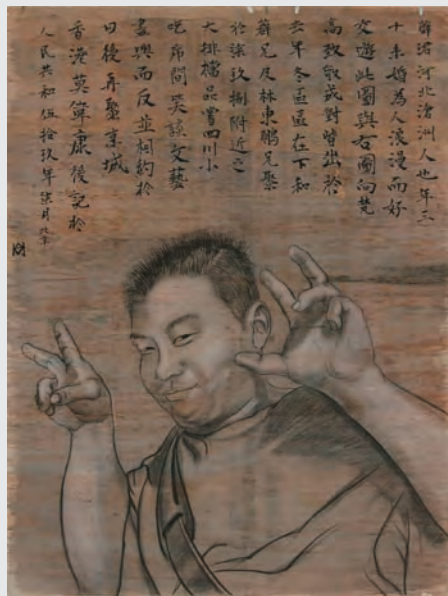 薛河北滄洲人也年三
十未婚為人浪漫而好
交遊此圖與右圖向梵
高致敬或對皆出於
去年冬區區在下和
薛兄及林東鵬兄聚
於柒玖捌附近之
大排檔品嘗四川小
吃席間笑談文藝
盡興而反並相約於
日後再聚京城
香港莫康後記於
人民共和伍拾玖年柒月北京